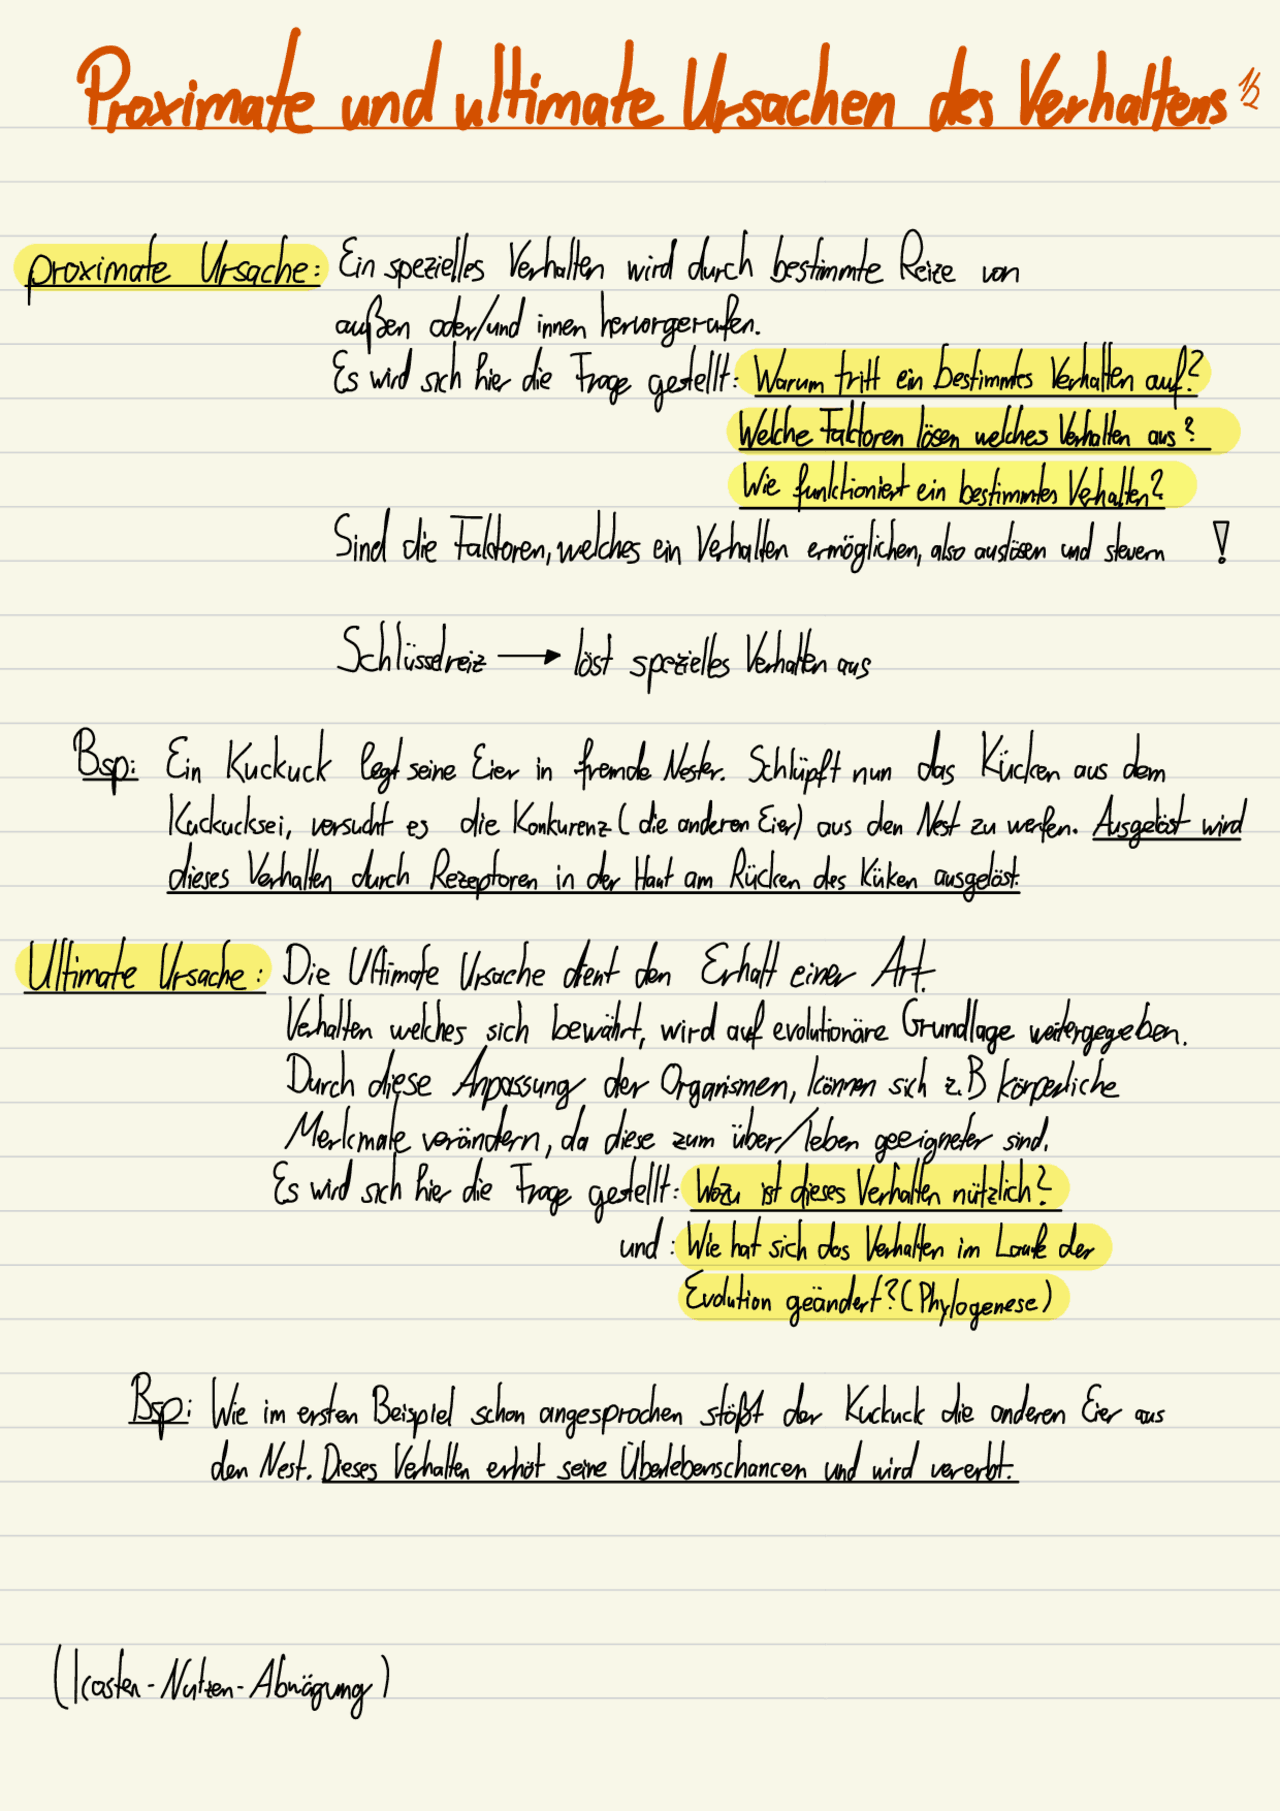 Proximate und ultimate Ursachen des Verhaltens 1/2
proximate Ursache: Ein spezielles Verhalten wird durch bestimmte Reize von
außen oder/und innen hervorgerufen.
Es wird sich hier die Frage gestellt: Warum tritt ein bestimmtes Verhalten auf?
Welche Faktoren lösen welches Verhalten aus?
Wie funktioniert ein bestimmtes Verhalten?
Sind die Faktoren, welches ein Verhalten ermöglichen, also auslösen und steuern !
Schlüsselreiz → löst spezielles Verhalten aus
Bsp: Ein Kuckuck legt seine Eier in fremde Nester. Schlüpft nun das Kücken aus dem
Kuckucksei, versucht es die Konkurenz (die anderen Eier) aus den Nest zu werfen. Ausgelöst wird
dieses Verhalten durch Rezeptoren in der Haut am Rücken des Küken ausgelöst.
Ultimate Ursache: Die Ultimate Ursache dient den Erhalt einer Art.
Verhalten welches sich bewährt, wird auf evolutionäre Grundlage weitergegeben.
Durch diese Anpassung der Organismen, können sich z.B körperliche
Merkmale verändern, da diese zum über/leben geeigneter sind.
Es wird sich hier die Frage gestellt: Wozu ist dieses Verhalten nützlich?
und: Wie hat sich das Verhalten im Laufe der
Evolution geändert? (Phylogenese)
Bsp: Wie im ersten Beispiel schon angesprochen stößt der Kuckuck die anderen Eier aus
den Nest. Dieses Verhalten erhöt seine Überlebenschancen und wird vererbt.
(Kosten-Nutzen-Abwägung)